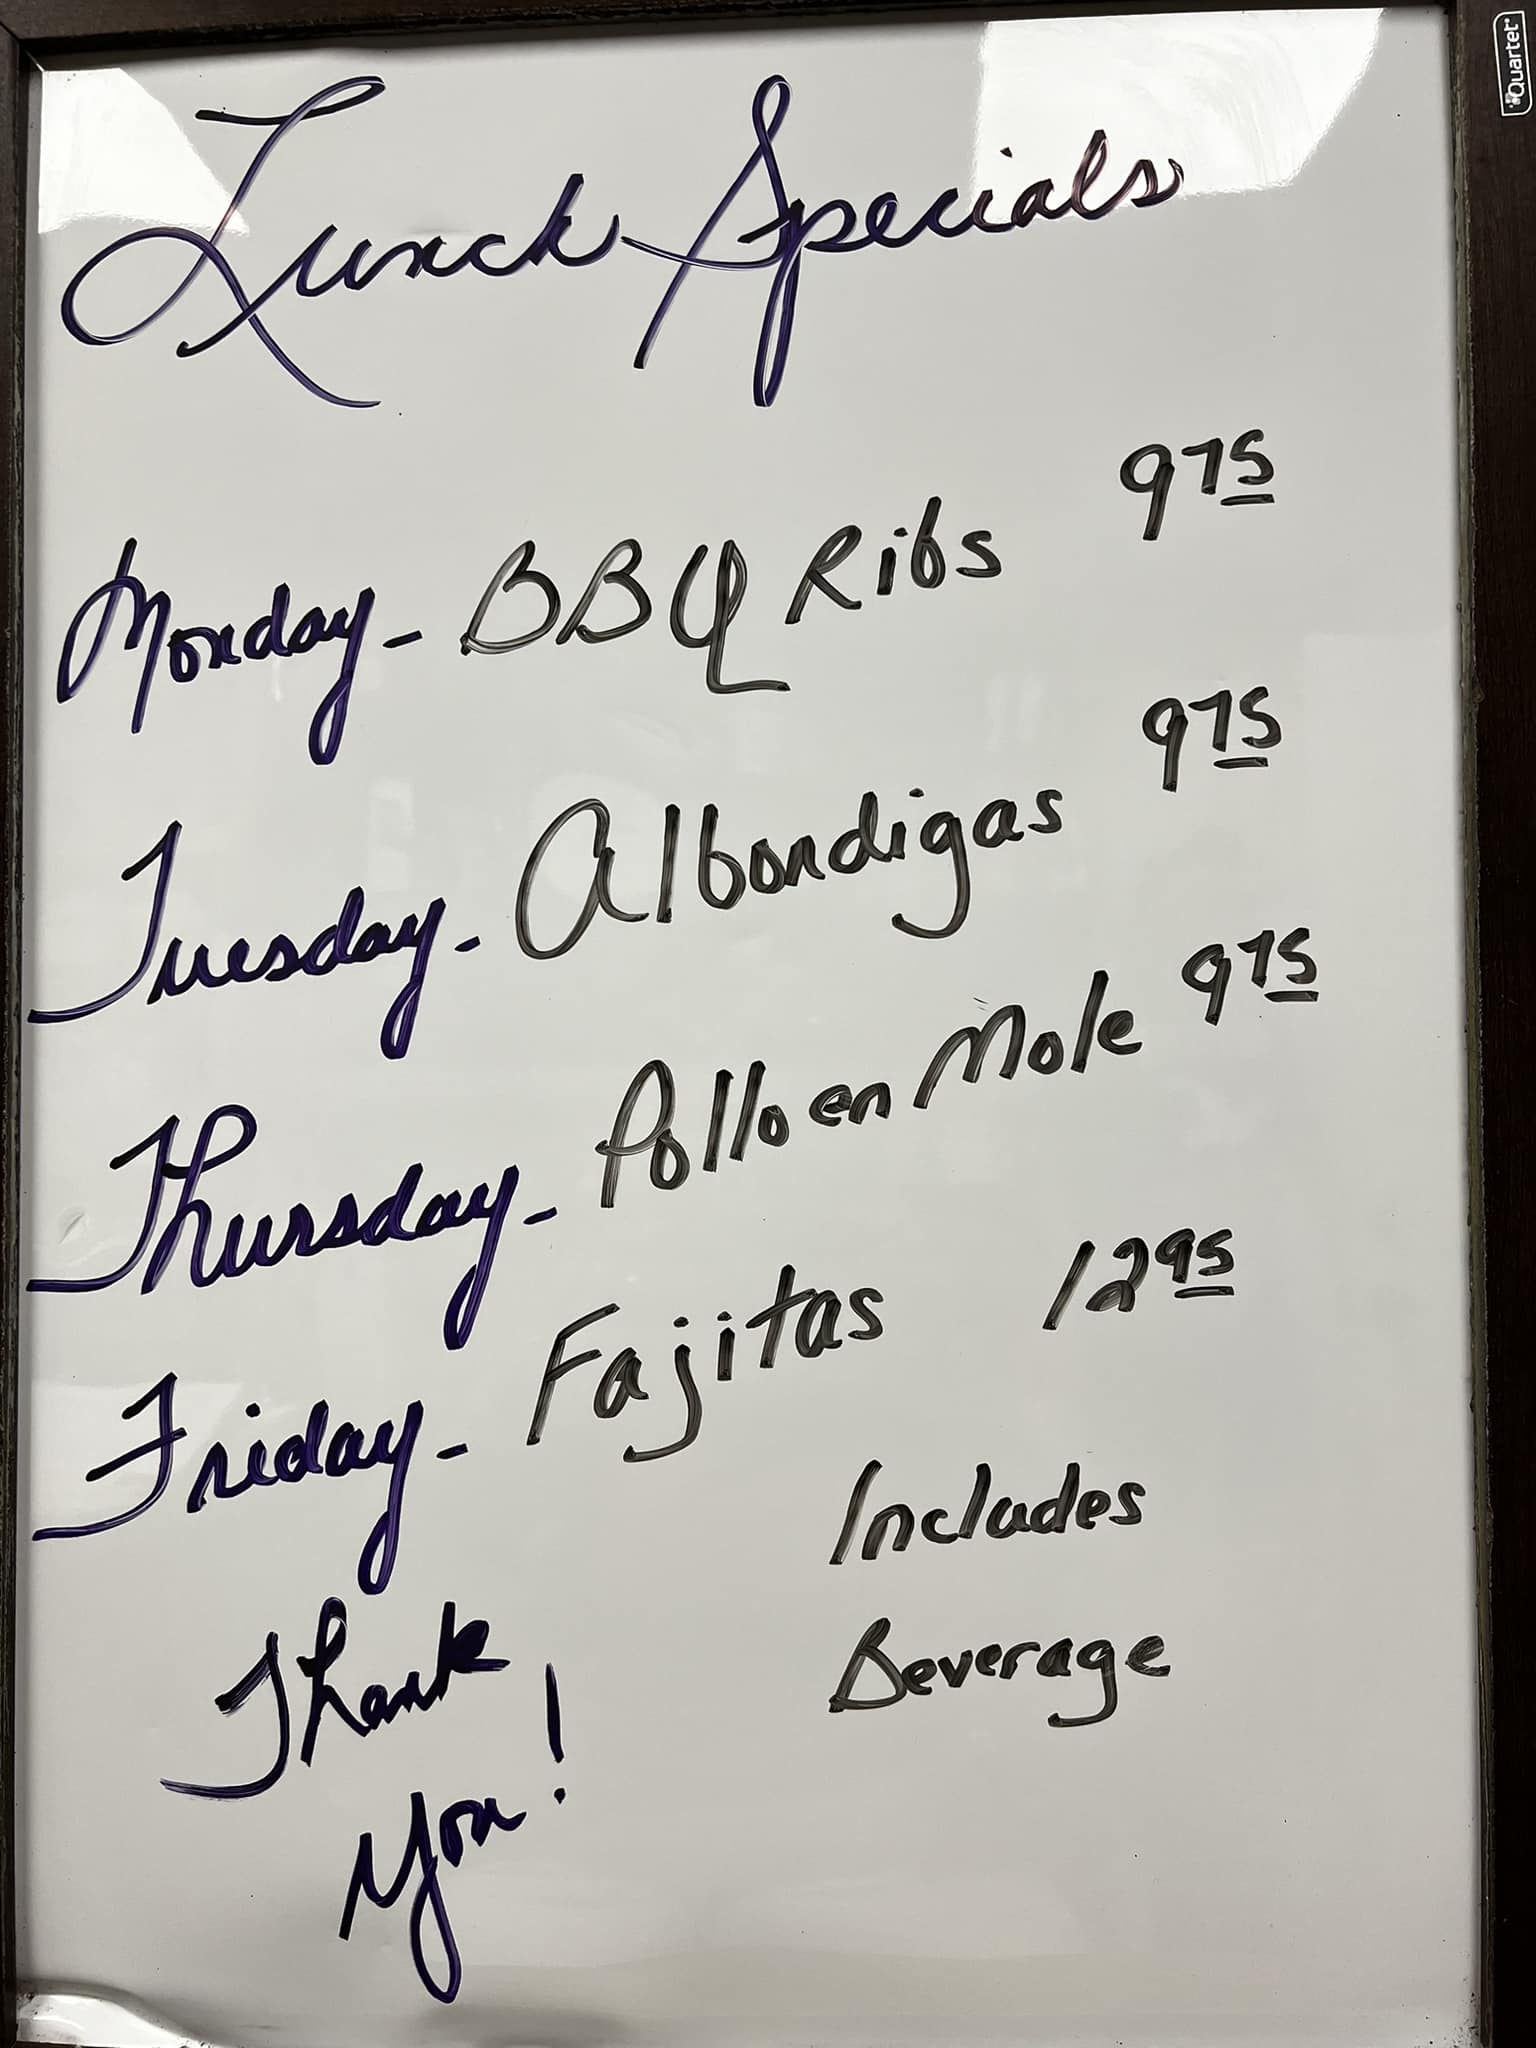 Quartet
Lunch Specials
Monday - BBQ Ribs 9 75
Tuesday - Albondigas 9 75
Thursday - Pollo en Mole 9 75
Friday - Fajitas 12 95
Includes
Beverage
Thank
You!